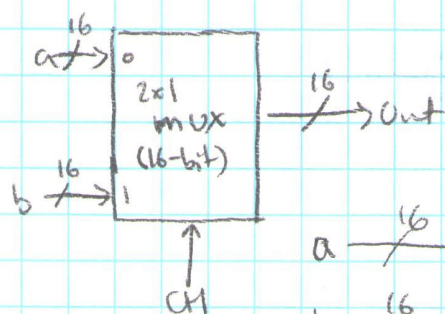 16
a
0
2x1
mux
(16-bit)
16
Out
16
b
1
16
a
16